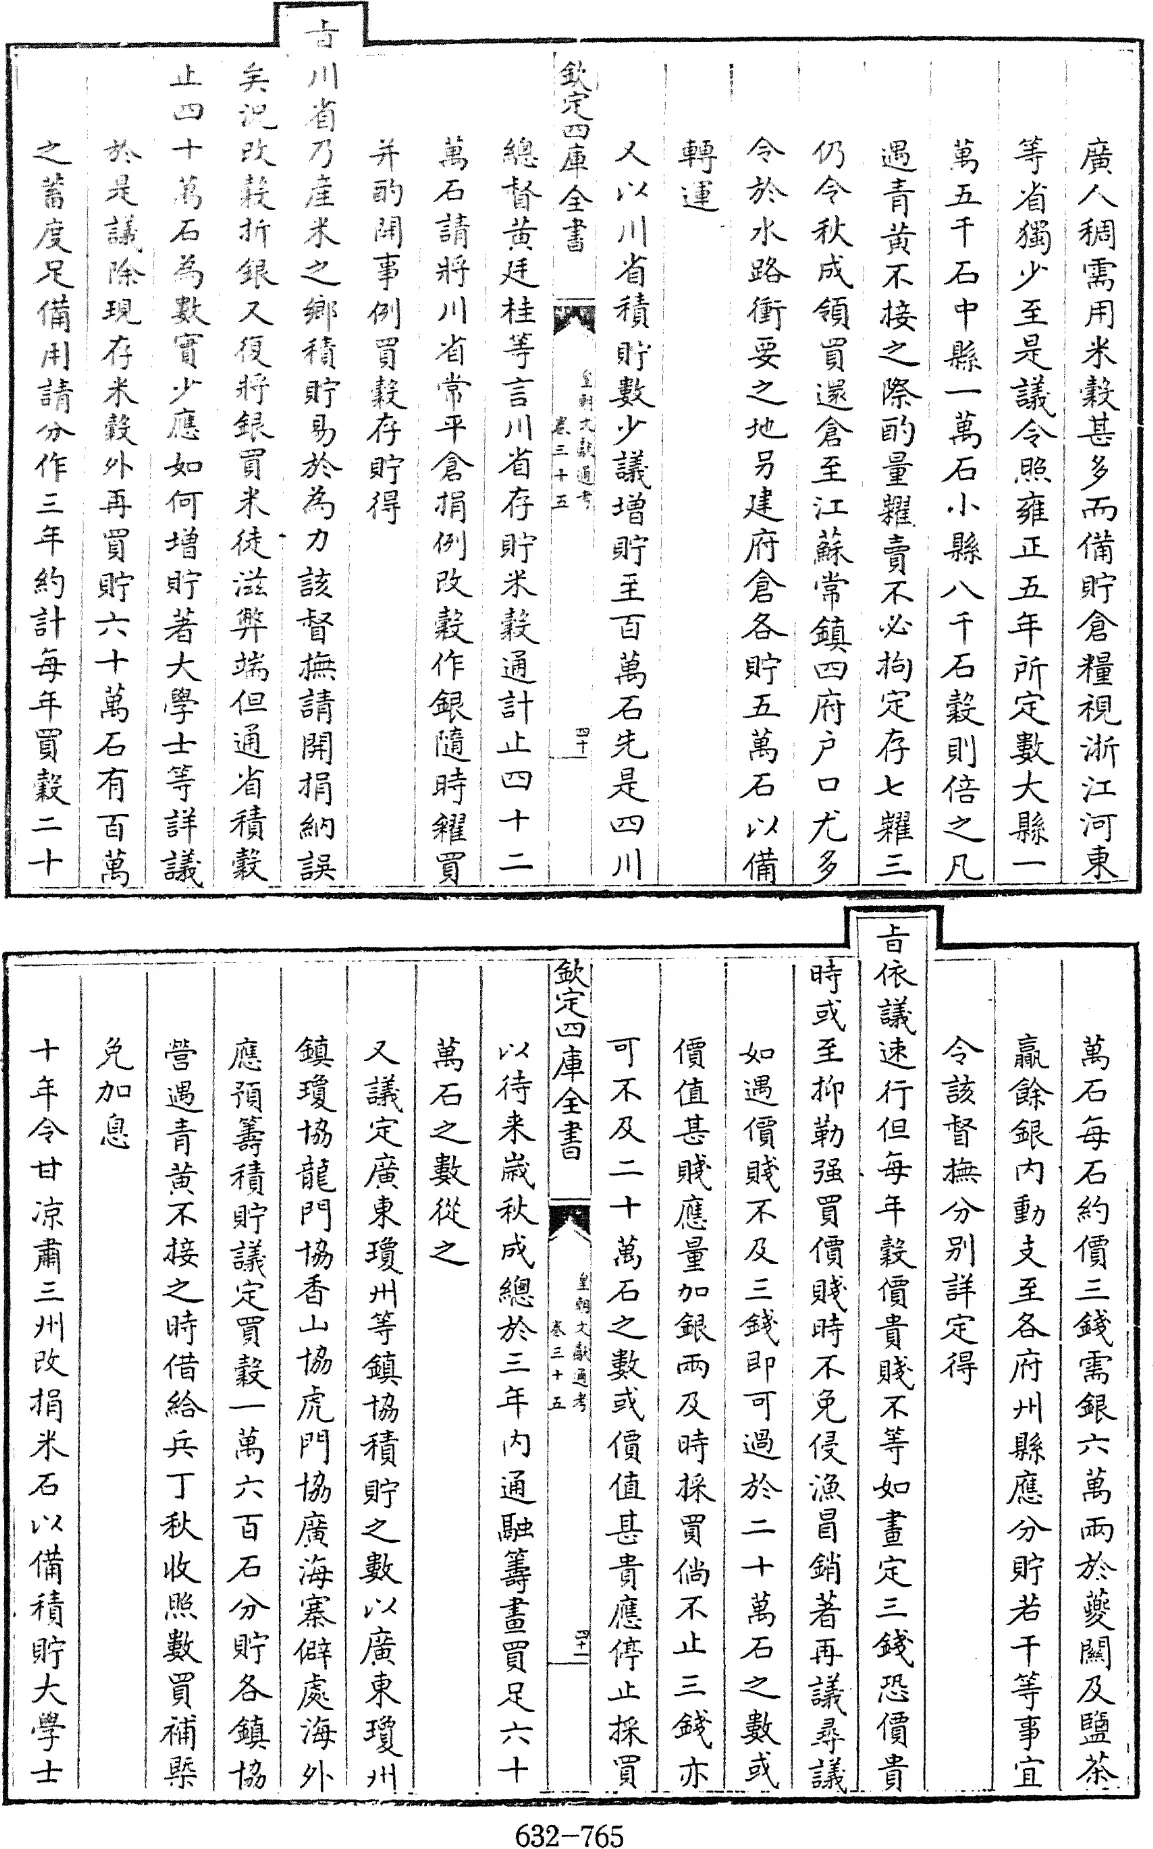 廣人稠需用米穀甚多而備貯倉糧視浙江河東
等省獨少至是議令照雍正五年所定數大縣一
萬五千石中縣一萬石小縣八千石穀則倍之凡
遇青黃不接之際酌量糶賣不必拘定存七糶三
仍令秋成領買還倉至江蘇常鎮四府户口尤多
令於水路衝要之地另建府倉各貯五萬石以備
轉運
又以川省積貯數少議增貯至百萬石先是四川
欽定四庫全書
皇朝文獻通考
卷三十五
四十
總督黃廷桂等言川省存貯米穀通計止四十二
萬石請將川省常平倉捐例改穀作銀隨時糴買
并酌開事例買穀存貯得
旨川省乃產米之鄉積貯易於為力該督撫請開捐納誤
矣況改穀折銀又復將銀買米徒滋弊端但通省積穀
止四十萬石為數實少應如何增貯著大學士等詳議
於是議除現存米穀外再買貯六十萬石有百萬
之蓄度足備用請分作三年約計每年買穀二十
萬石每石約價三錢需銀六萬兩於夔關及鹽茶
贏餘銀内動支至各府州縣應分貯若干等事宜
令該督撫分别詳定得
旨依議速行但每年穀價貴賤不等如畫定三錢恐價貴
時或至抑勒强買價賤時不免侵漁冒銷著再議尋議
如遇價賤不及三錢即可過於二十萬石之數或
價值甚賤應量加銀兩及時採買倘不止三錢亦
可不及二十萬石之數或價值甚貴應停止採買
欽定四庫全書
皇朝文獻通考
卷三十五
四十一
以待来歲秋成總於三年内通融籌畫買足六十
萬石之數從之
又議定廣東瓊州等鎮協積貯之數以廣東瓊州
鎮瓊協龍門協香山協虎門協廣海寨僻處海外
應預籌積貯議定買穀一萬六百石分貯各鎮協
營遇青黃不接之時借給兵丁秋收照數買補槩
免加息
十年令甘凉肅三州改捐米石以備積貯大學士
632-765